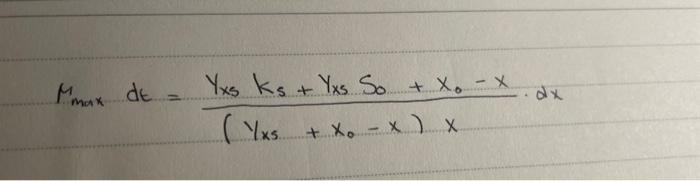 μmax dt = (Yxs Ks + Yxs So + Xo - X) / ((Yxs + Xo - X) X) . dx